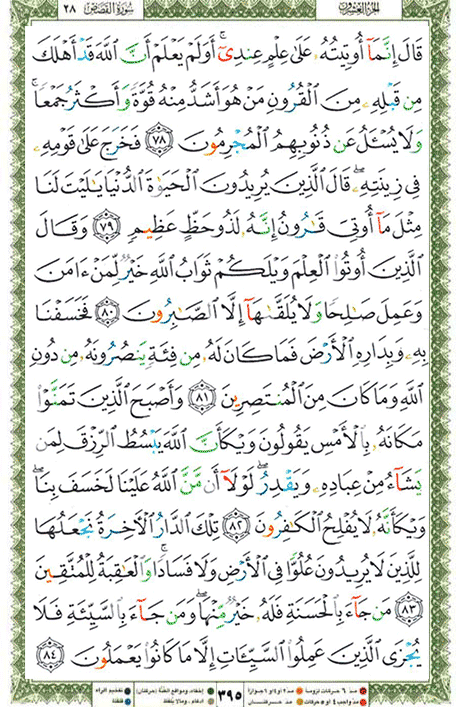 الجزء العشرون سورة القصص ٢٨
قَالَ إِنَّمَآ أُوتِيتُهُۥ عَلَىٰ عِلْمٍ عِندِىٓ ۚ أَوَلَمْ يَعْلَمْ أَنَّ اللَّهَ قَدْ أَهْلَكَ
مِن قَبْلِهِۦ مِنَ الْقُرُونِ مَنْ هُوَ أَشَدُّ مِنْهُ قُوَّةً وَأَكْثَرُ جَمْعًا ۚ
وَلَا يُسْـَٔلُ عَن ذُنُوبِهِمُ الْمُجْرِمُونَ ٧٨ فَخَرَجَ عَلَىٰ قَوْمِهِۦ
فِى زِينَتِهِۦ ۖ قَالَ الَّذِينَ يُرِيدُونَ الْحَيَوٰةَ الدُّنْيَا يَٰلَيْتَ لَنَا
مِثْلَ مَآ أُوتِىَ قَٰرُونُ إِنَّهُۥ لَذُو حَظٍّ عَظِيمٍ ٧٩ وَقَالَ
الَّذِينَ أُوتُوا۟ الْعِلْمَ وَيْلَكُمْ ثَوَابُ اللَّهِ خَيْرٌ لِّمَنْ ءَامَنَ
وَعَمِلَ صَٰلِحًا وَلَا يُلَقَّىٰهَآ إِلَّا الصَّٰبِرُونَ ٨٠ فَخَسَفْنَا
بِهِۦ وَبِدَارِهِ الْأَرْضَ فَمَا كَانَ لَهُۥ مِن فِئَةٍ يَنصُرُونَهُۥ مِن دُونِ
اللَّهِ وَمَا كَانَ مِنَ الْمُنتَصِرِينَ ٨١ وَأَصْبَحَ الَّذِينَ تَمَنَّوْا۟
مَكَانَهُۥ بِالْأَمْسِ يَقُولُونَ وَيْكَأَنَّ اللَّهَ يَبْسُطُ الرِّزْقَ لِمَن
يَشَآءُ مِنْ عِبَادِهِۦ وَيَقْدِرُ ۖ لَوْلَآ أَن مَّنَّ اللَّهُ عَلَيْنَا لَخَسَفَ بِنَا ۖ
وَيْكَأَنَّهُۥ لَا يُفْلِحُ الْكَٰفِرُونَ ٨٢ تِلْكَ الدَّارُ الْأَخِرَةُ نَجْعَلُهَا
لِلَّذِينَ لَا يُرِيدُونَ عُلُوًّا فِى الْأَرْضِ وَلَا فَسَادًا ۚ وَالْعَٰقِبَةُ لِلْمُتَّقِينَ
٨٣ مَن جَآءَ بِالْحَسَنَةِ فَلَهُۥ خَيْرٌ مِّنْهَا ۖ وَمَن جَآءَ بِالسَّيِّئَةِ فَلَا
يُجْزَى الَّذِينَ عَمِلُوا۟ السَّيِّـَٔاتِ إِلَّا مَا كَانُوا۟ يَعْمَلُونَ ٨٤
مد ٦ حركات لزوما مد ٢ او ٤ او ٦ جوازا ٣٩٥ إخفاء، ومواقع الغنة (حركتان) تفخيم الراء
مد واجب ٤ او ٥ حركات مد حركتان ادغام، وما لا يلفظ قلقلة